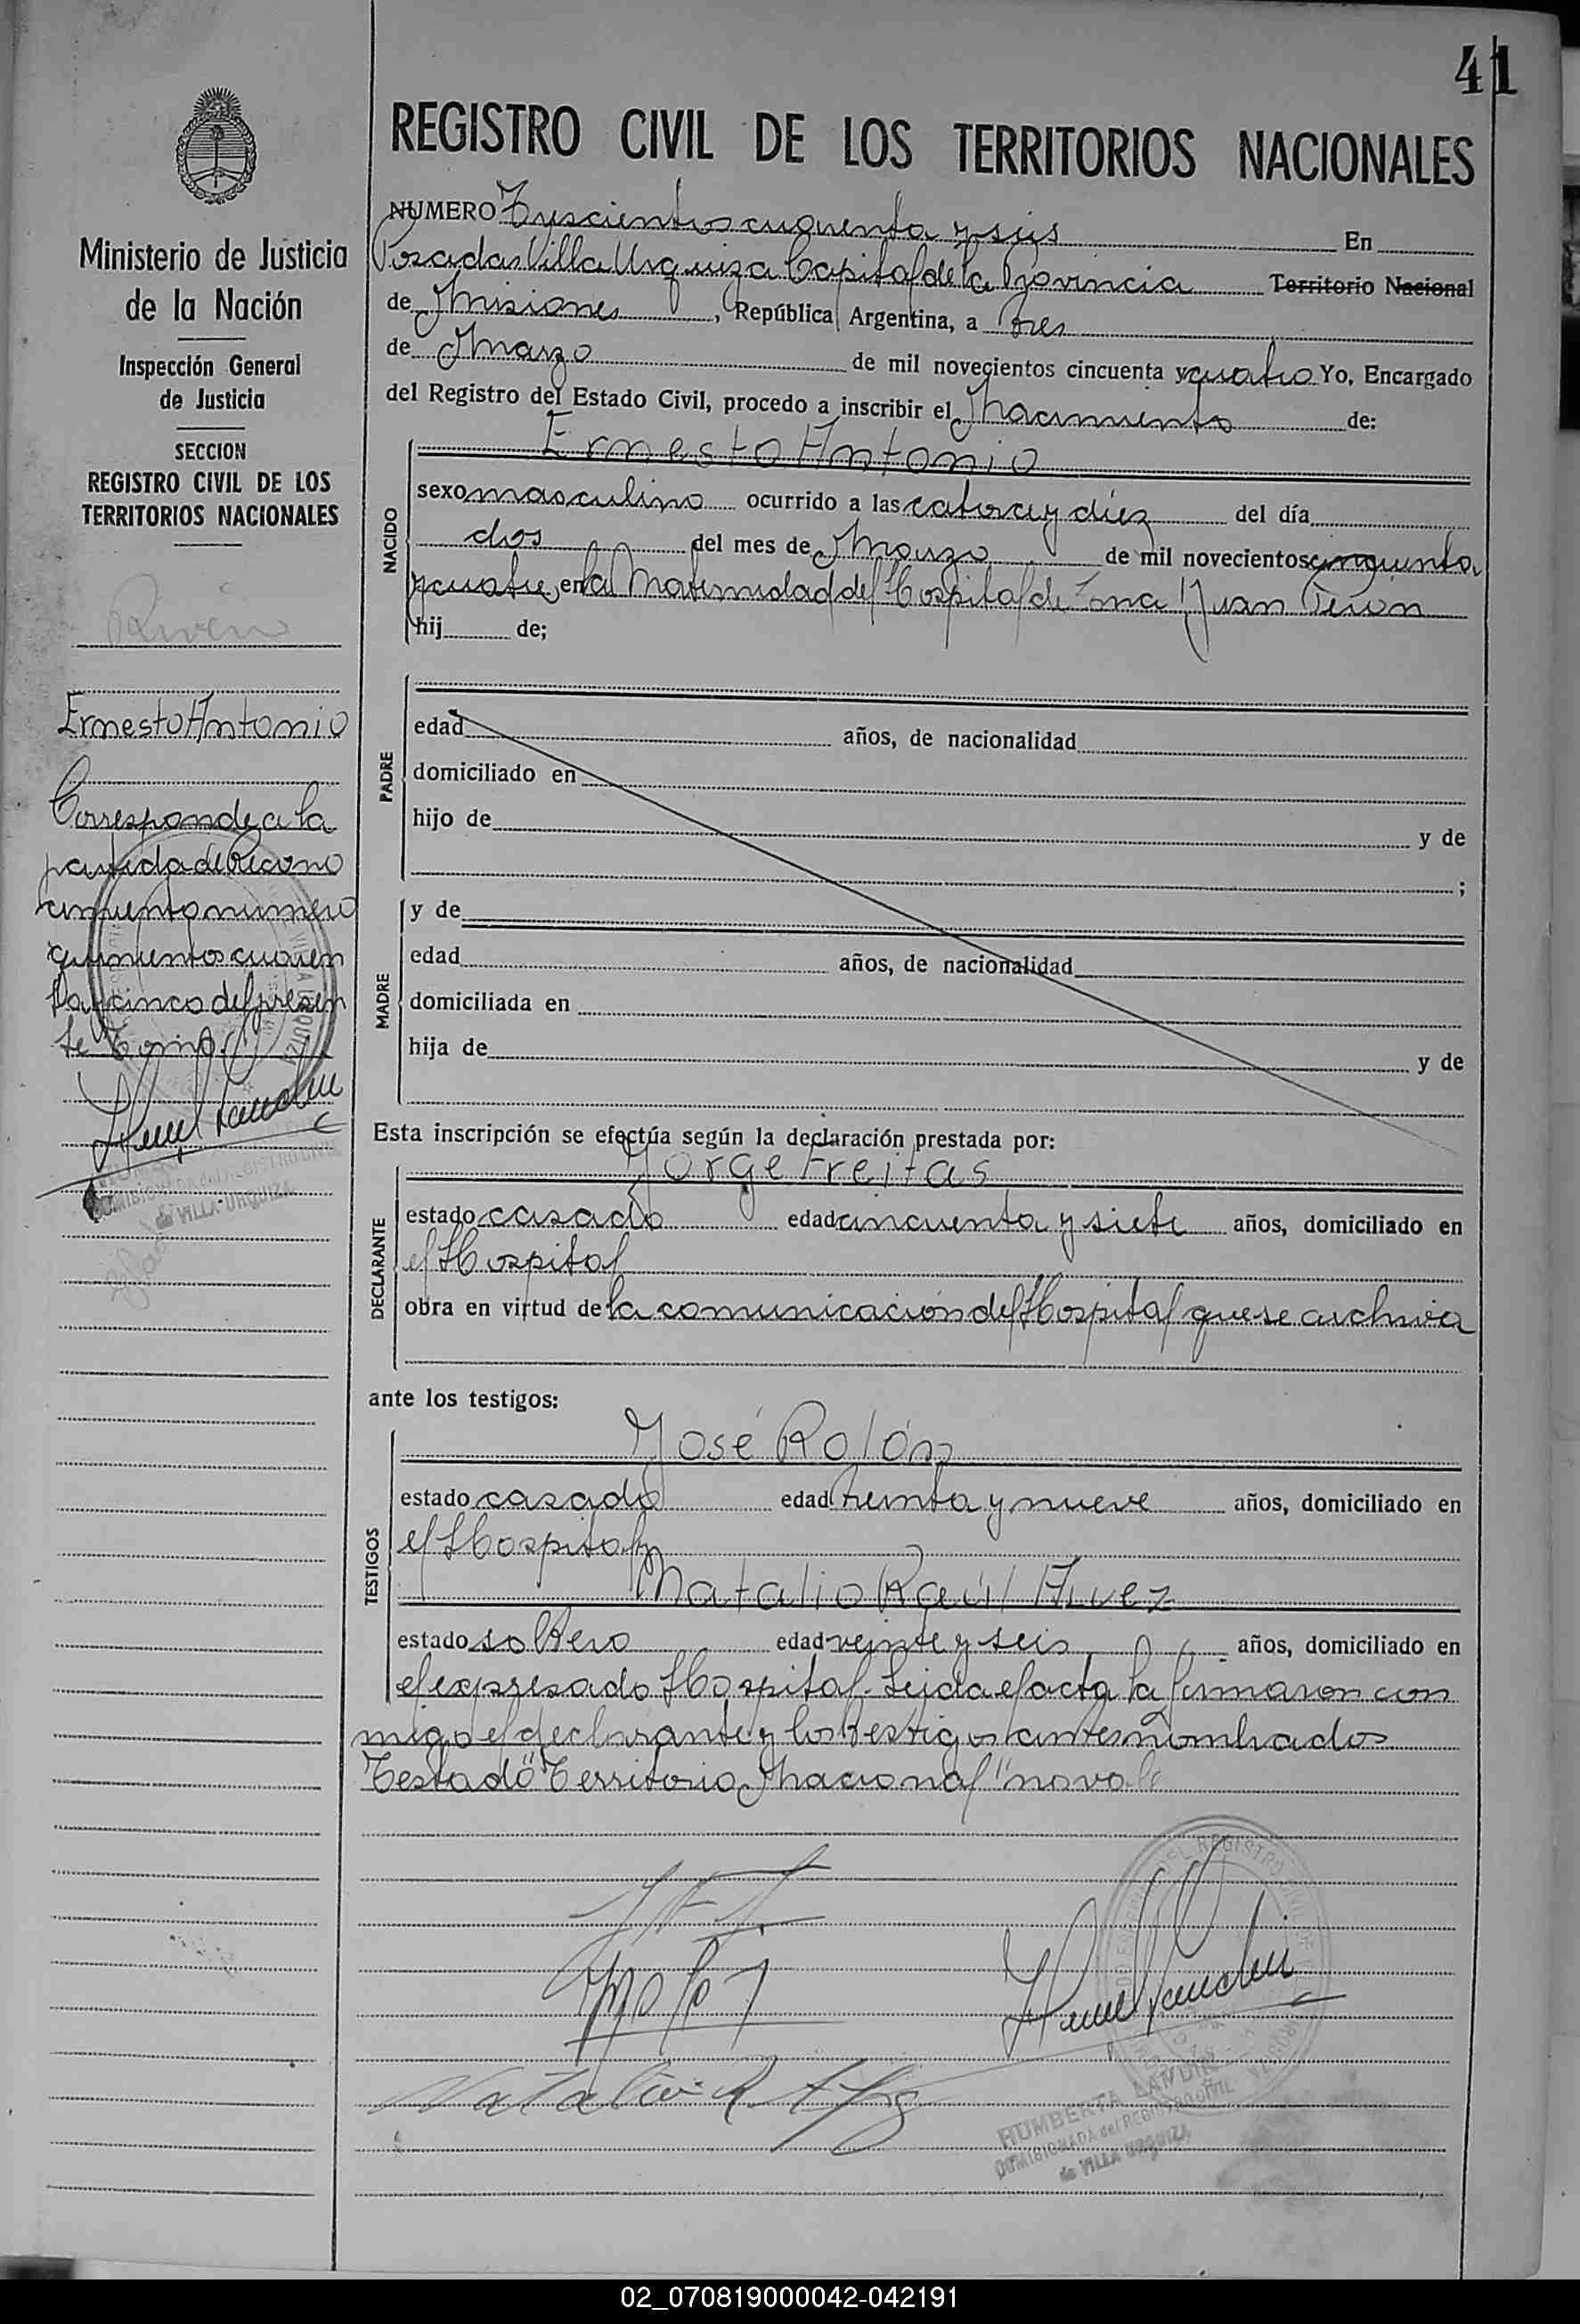 41
REGISTRO CIVIL DE LOS TERRITORIOS NACIONALES
Ministerio de Justicia
de la Nación
Inspección General
de Justicia
SECCION
REGISTRO CIVIL DE LOS
TERRITORIOS NACIONALES
Ernesto Antonio
Corresponde a la
partida de Recono
cimiento número
quinientos cuaren
ta y cinco del presen
te Tomo.
de VILLA URQUIZA
NUMERO Trescientos cuarenta y seis En
Posadas Villa Urquiza Capital de la Provincia Territorio Nacional
de Misiones, República Argentina, a tres
de Marzo de mil novecientos cincuenta y cuatro Yo, Encargado
del Registro del Estado Civil, procedo a inscribir el Nacimiento de:
NACIDO
Ernesto Antonio
sexo masculino ocurrido a las catorce y diez del día
dos del mes de Marzo de mil novecientos cincuenta
y cuatro, en la Maternidad del Hospital de Zona "Juan Perón
hij de;
PADRE
edad años, de nacionalidad
domiciliado en
hijo de y de
;
MADRE
y de
edad años, de nacionalidad
domiciliada en
hija de y de
Esta inscripción se efectúa según la declaración prestada por:
DECLARANTE
Jorge Freitas
estado casado edad cincuenta y siete años, domiciliado en
el Hospital
obra en virtud de la comunicación del Hospital que se archiva
ante los testigos:
TESTIGOS
José Rolón
estado casado edad treinta y nueve años, domiciliado en
el Hospital y
Natalio Raúl Alvez
estado soltero edad veinte y seis años, domiciliado en
el expresado Hospital. Leida el acta la firmaron con
migo el declarante y los testigos antes nombrados
Testado "Territorio Nacional" no vale
Natalio R.
HUMBERTA LANDI
COMISIONADA del REGISTRO CIVIL
de VILLA URQUIZA
02_070819000042-042191